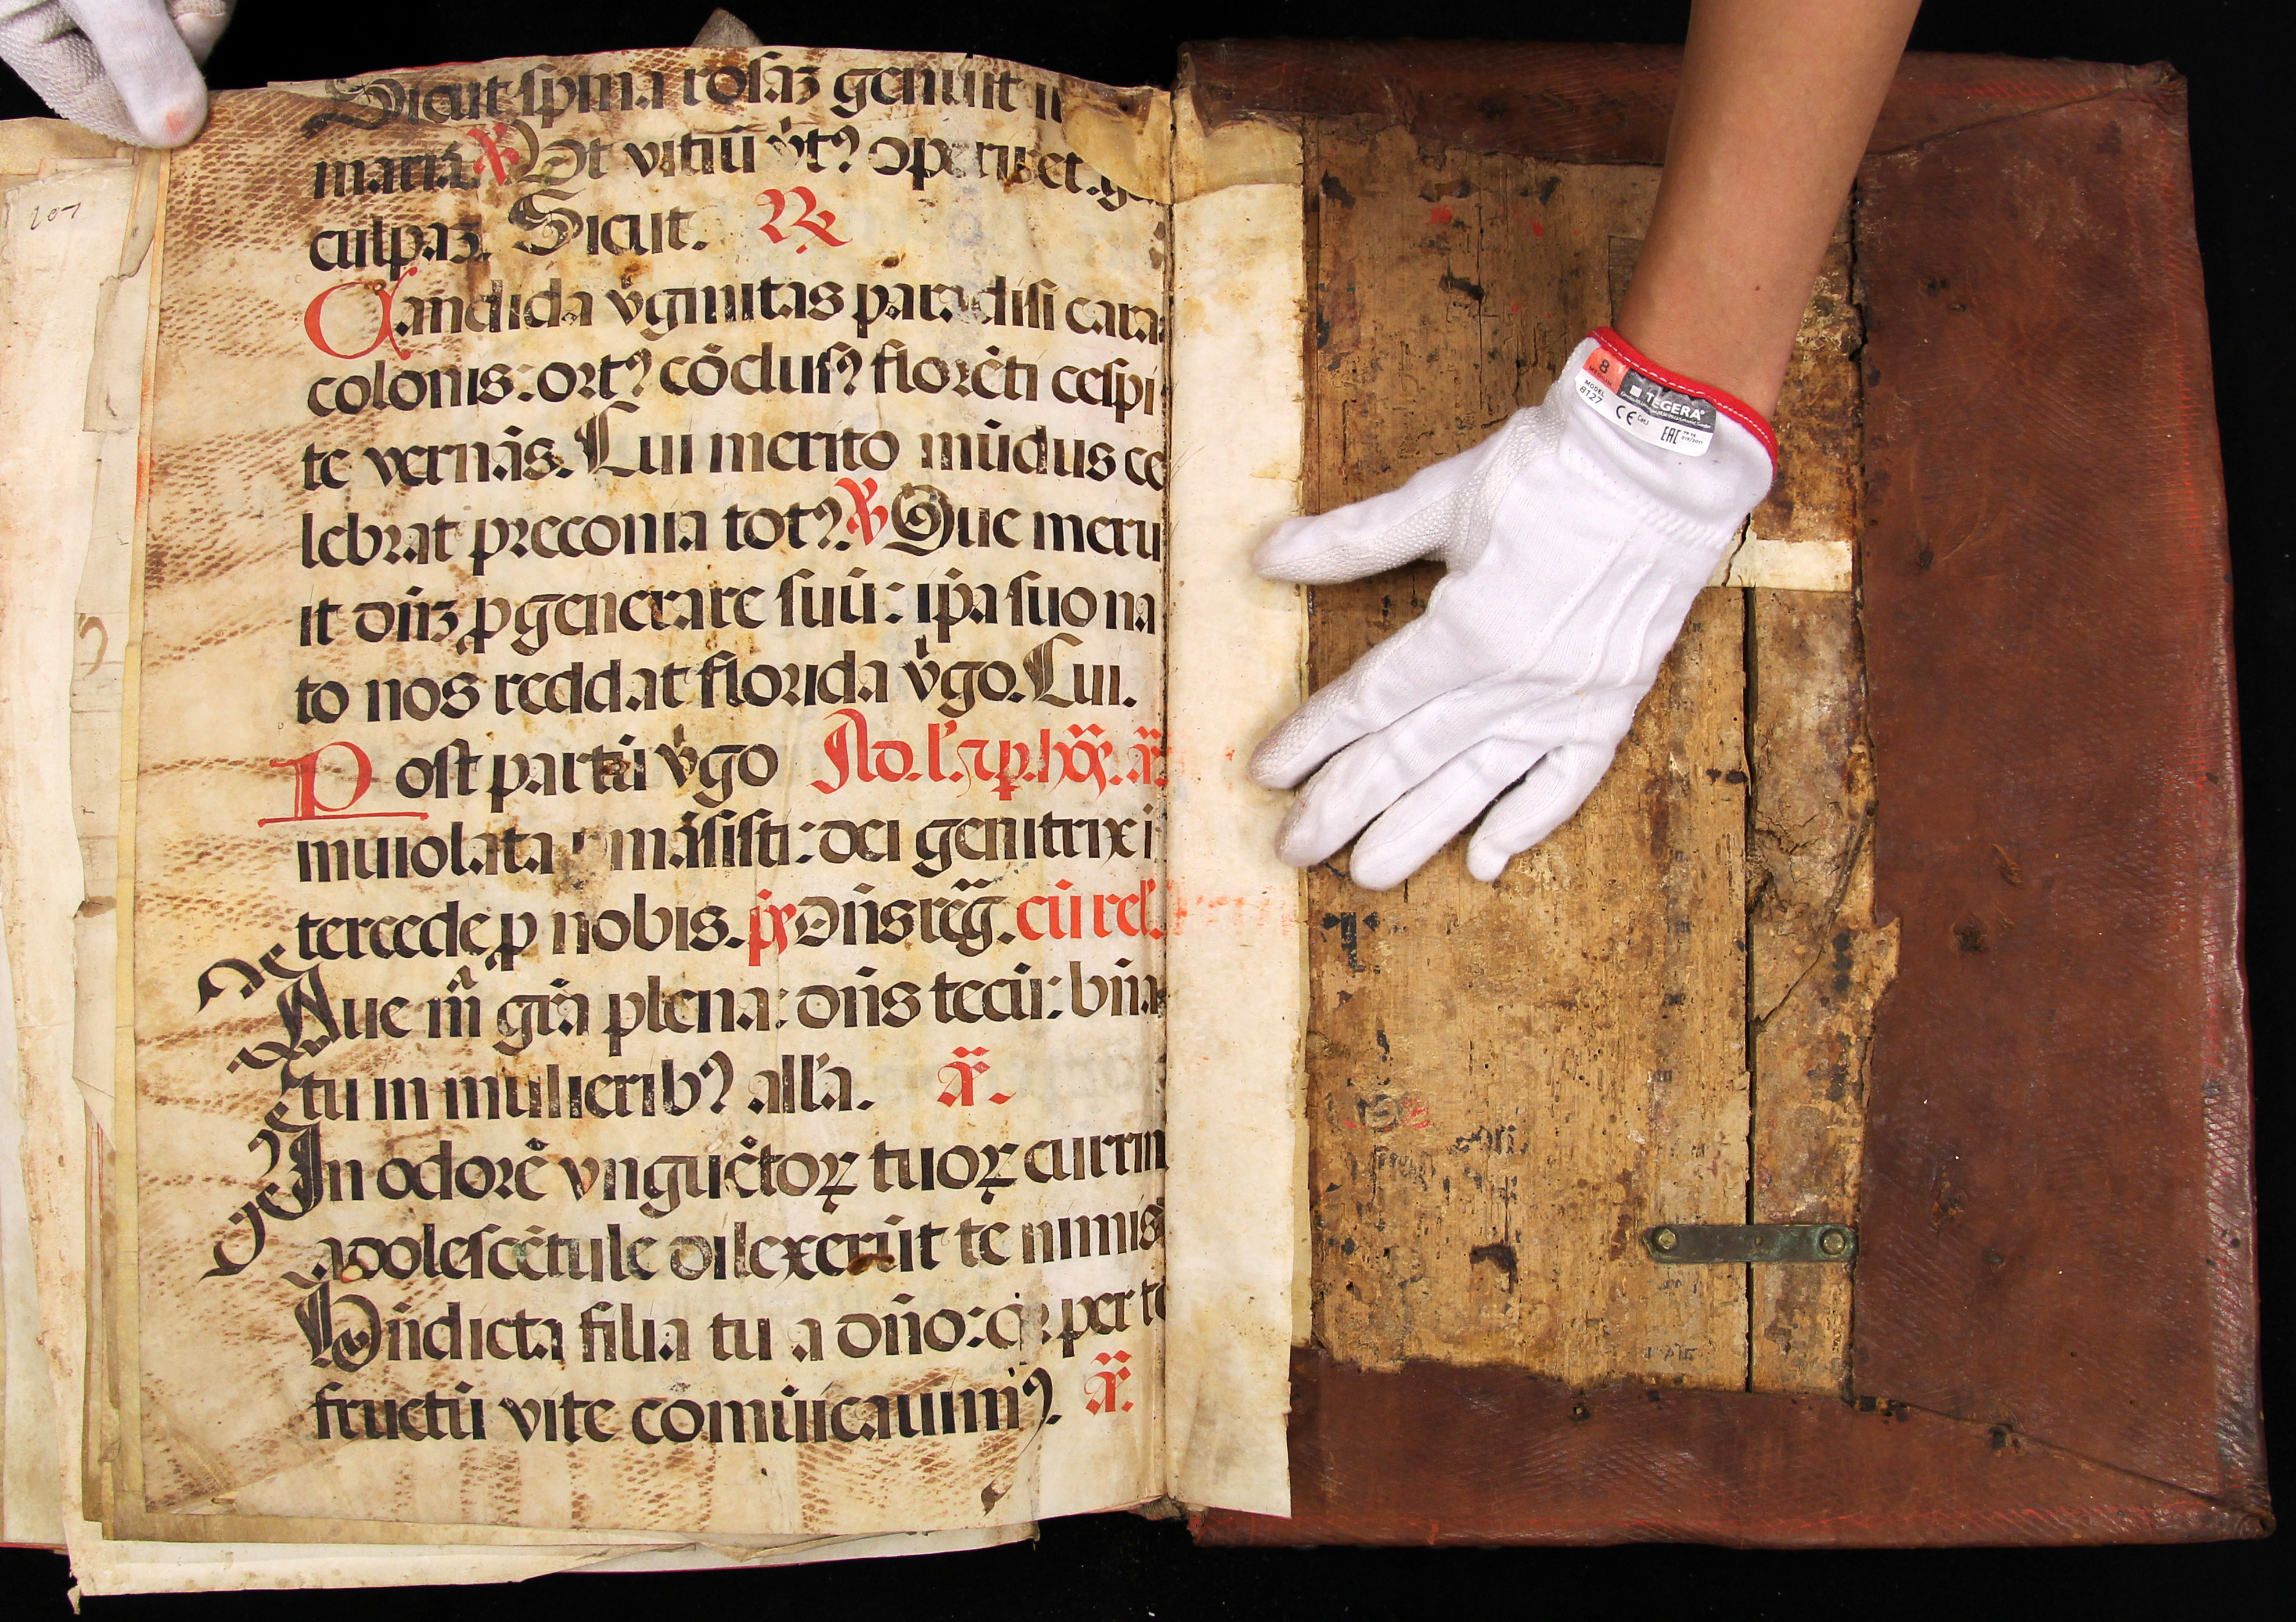 207
Sicut spina rosaʒ genuit
mariā. ℣ Ut vitiū v̓tꝰ operiret. g
culpaʒ. Sicut. ℟
Candida v̓ginitas paradisi cara
colonis: ortꝰ cōclusꝰ florēti cespi
te vernās. Cui merito mūdus ce
lebrat preconia totꝰ. ℣ Que meru
it dn̄ʒ ꝓgenerare suū: ip̄a suo na
to nos reddat florida v̓go. Cui.
Post partū v̓go Ad.
inuiolata ꝑmāsisti: dei genitrix i
tercede ꝓ nobis. ps̄ Dn̄s reḡ. cū rel̓.
De
Aue m̄ grā plena: dn̄s tecū: bn̄
tu in mulieribꝰ all̓a. ã.
In odorē vnguētoꝝ tuoꝝ currim
adolescētule dilexerūt te nimis
Bn̄dicta filia tu a dn̄o: per te
fructū vite cōmūicauimꝰ. ã.
8
MEDIUM
MODEL
8127
TEGERA®
CE
EAC